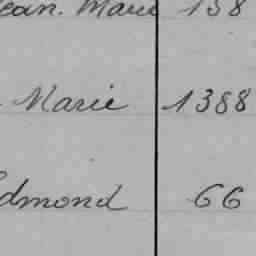 Jean. Marie 138
Marie 1388
Edmond 66